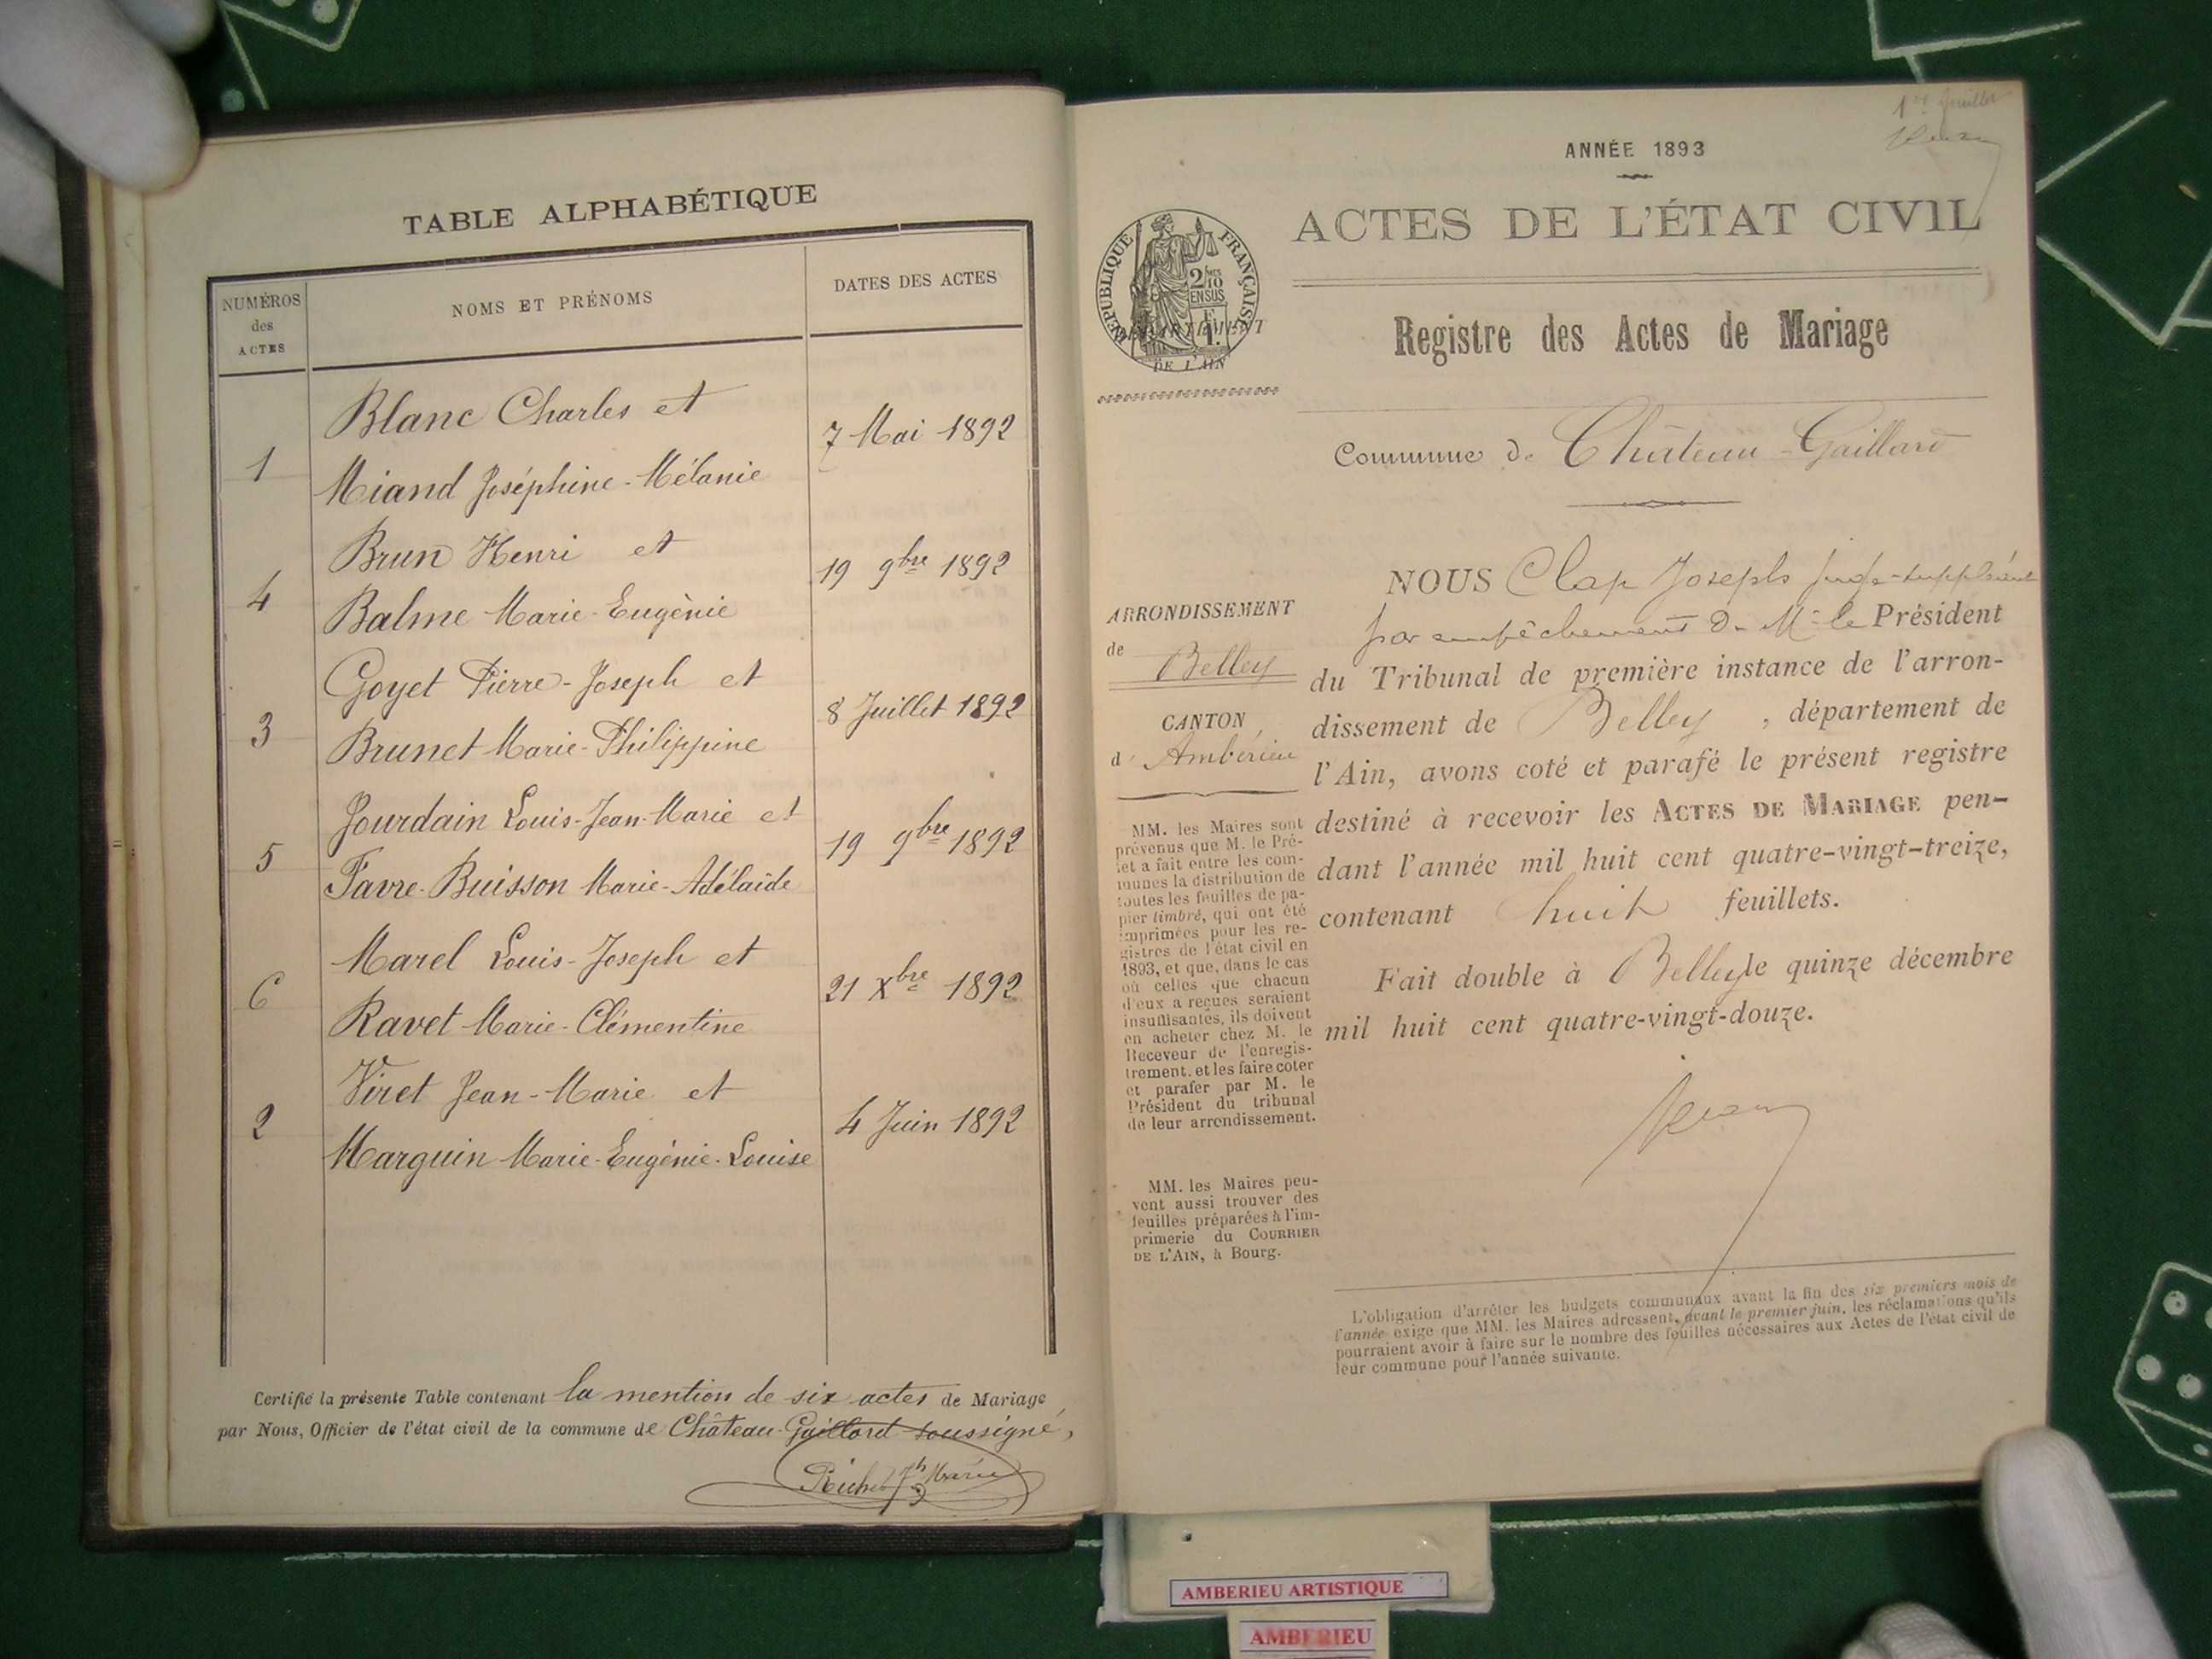 TABLE ALPHABÉTIQUE
NUMÉROS
des
ACTES
NOMS ET PRÉNOMS
DATES DES ACTES
Blanc Charles et
1
7 Mai 1892
Miand Joséphine-Mélanie
Brun Henri et
4
19 9bre 1892
Balme Marie-Eugènie
Goyet Pierre-Joseph et
3
8 Juillet 1892
Brunet Marie-Philippine
Jourdain Louis-Jean-Marie et
5
19 9bre 1892
Favre-Buisson Marie-Adélaïde
Marel Louis-Joseph et
6
21 Xbre 1892
Ravet Marie-Clémentine
Viret Jean-Marie et
2
4 Juin 1892
Marguin Marie-Eugénie-Louise
Certifié la présente Table contenant la mention de six actes de Mariage
par Nous, Officier de l'état civil de la commune de Château-Gaillard soussigné,
1er feuillet
ANNÉE 1893
ACTES DE L'ÉTAT CIVIL
RÉPUBLIQUE FRANÇAISE
2 10
EN SUS
DÉPARTEMENT
DE L'AIN
Registre des Actes de Mariage
Commune de Château-Gaillard
ARRONDISSEMENT
de
Belley
CANTON
d'Ambérieu
MM. les Maires sont
prévenus que M. le Pré-
fet a fait entre les com-
munes la distribution de
toutes les feuilles de pa-
pier timbré, qui ont été
imprimées pour les re-
gistres de l'état civil en
1893, et que, dans le cas
où celles que chacun
d'eux a reçues seraient
insuffisantes, ils doivent
en acheter chez M. le
Receveur de l'enregis-
trement, et les faire coter
et parafer par M. le
Président du tribunal
de leur arrondissement.
MM. les Maires peu-
vent aussi trouver des
feuilles préparées à l'im-
primerie du COURRIER
DE L'AIN, à Bourg.
NOUS Clap Joseph juge-suppléant
par empêchement de M. le Président
du Tribunal de première instance de l'arron-
dissement de Belley, département de
l'Ain, avons coté et parafé le présent registre
destiné à recevoir les ACTES DE MARIAGE pen-
dant l'année mil huit cent quatre-vingt-treize,
contenant huit feuillets.
Fait double à Belley le quinze décembre
mil huit cent quatre-vingt-douze.
L'obligation d'arrêter les budgets communaux avant la fin des six premiers mois de
l'année exige que MM. les Maires adressent, avant le premier juin, les réclamations qu'ils
pourraient avoir à faire sur le nombre des feuilles nécessaires aux Actes de l'état civil de
leur commune pour l'année suivante.
AMBERIEU ARTISTIQUE
AMBERIEU